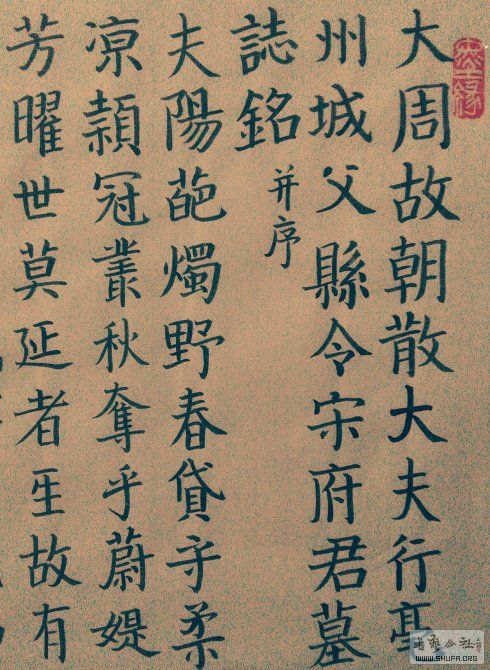 大周故朝散大夫行亳
州城父縣令宋府君墓
誌銘并序
夫陽葩燭野春貸乎柔
凉頴冠叢秋奪乎蔚媞
芳曜世莫延者𤯔故有
WWW.SHUFA.ORG